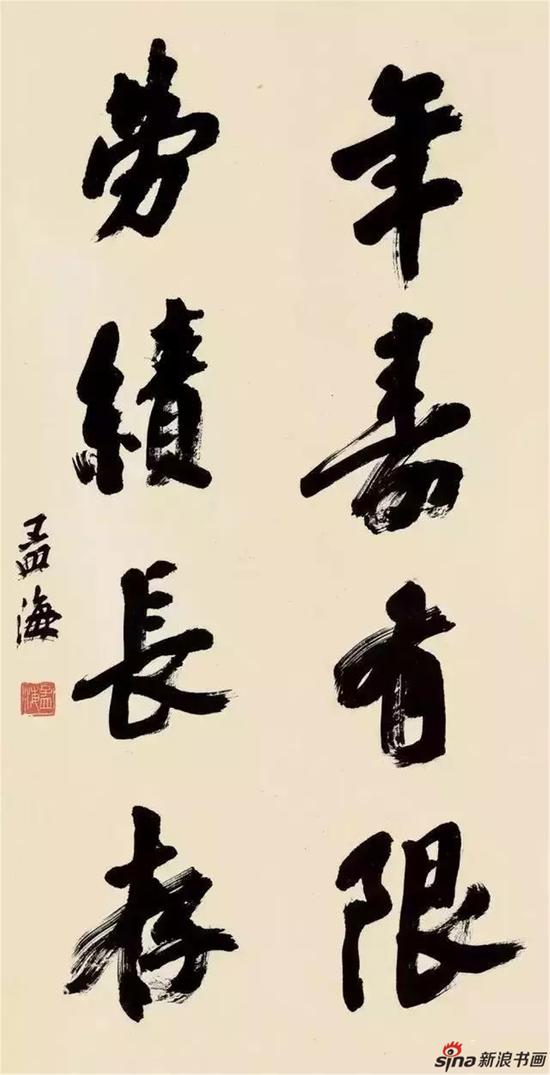 年壽有限
勞績長存
孟海
孟海
sina新浪书画